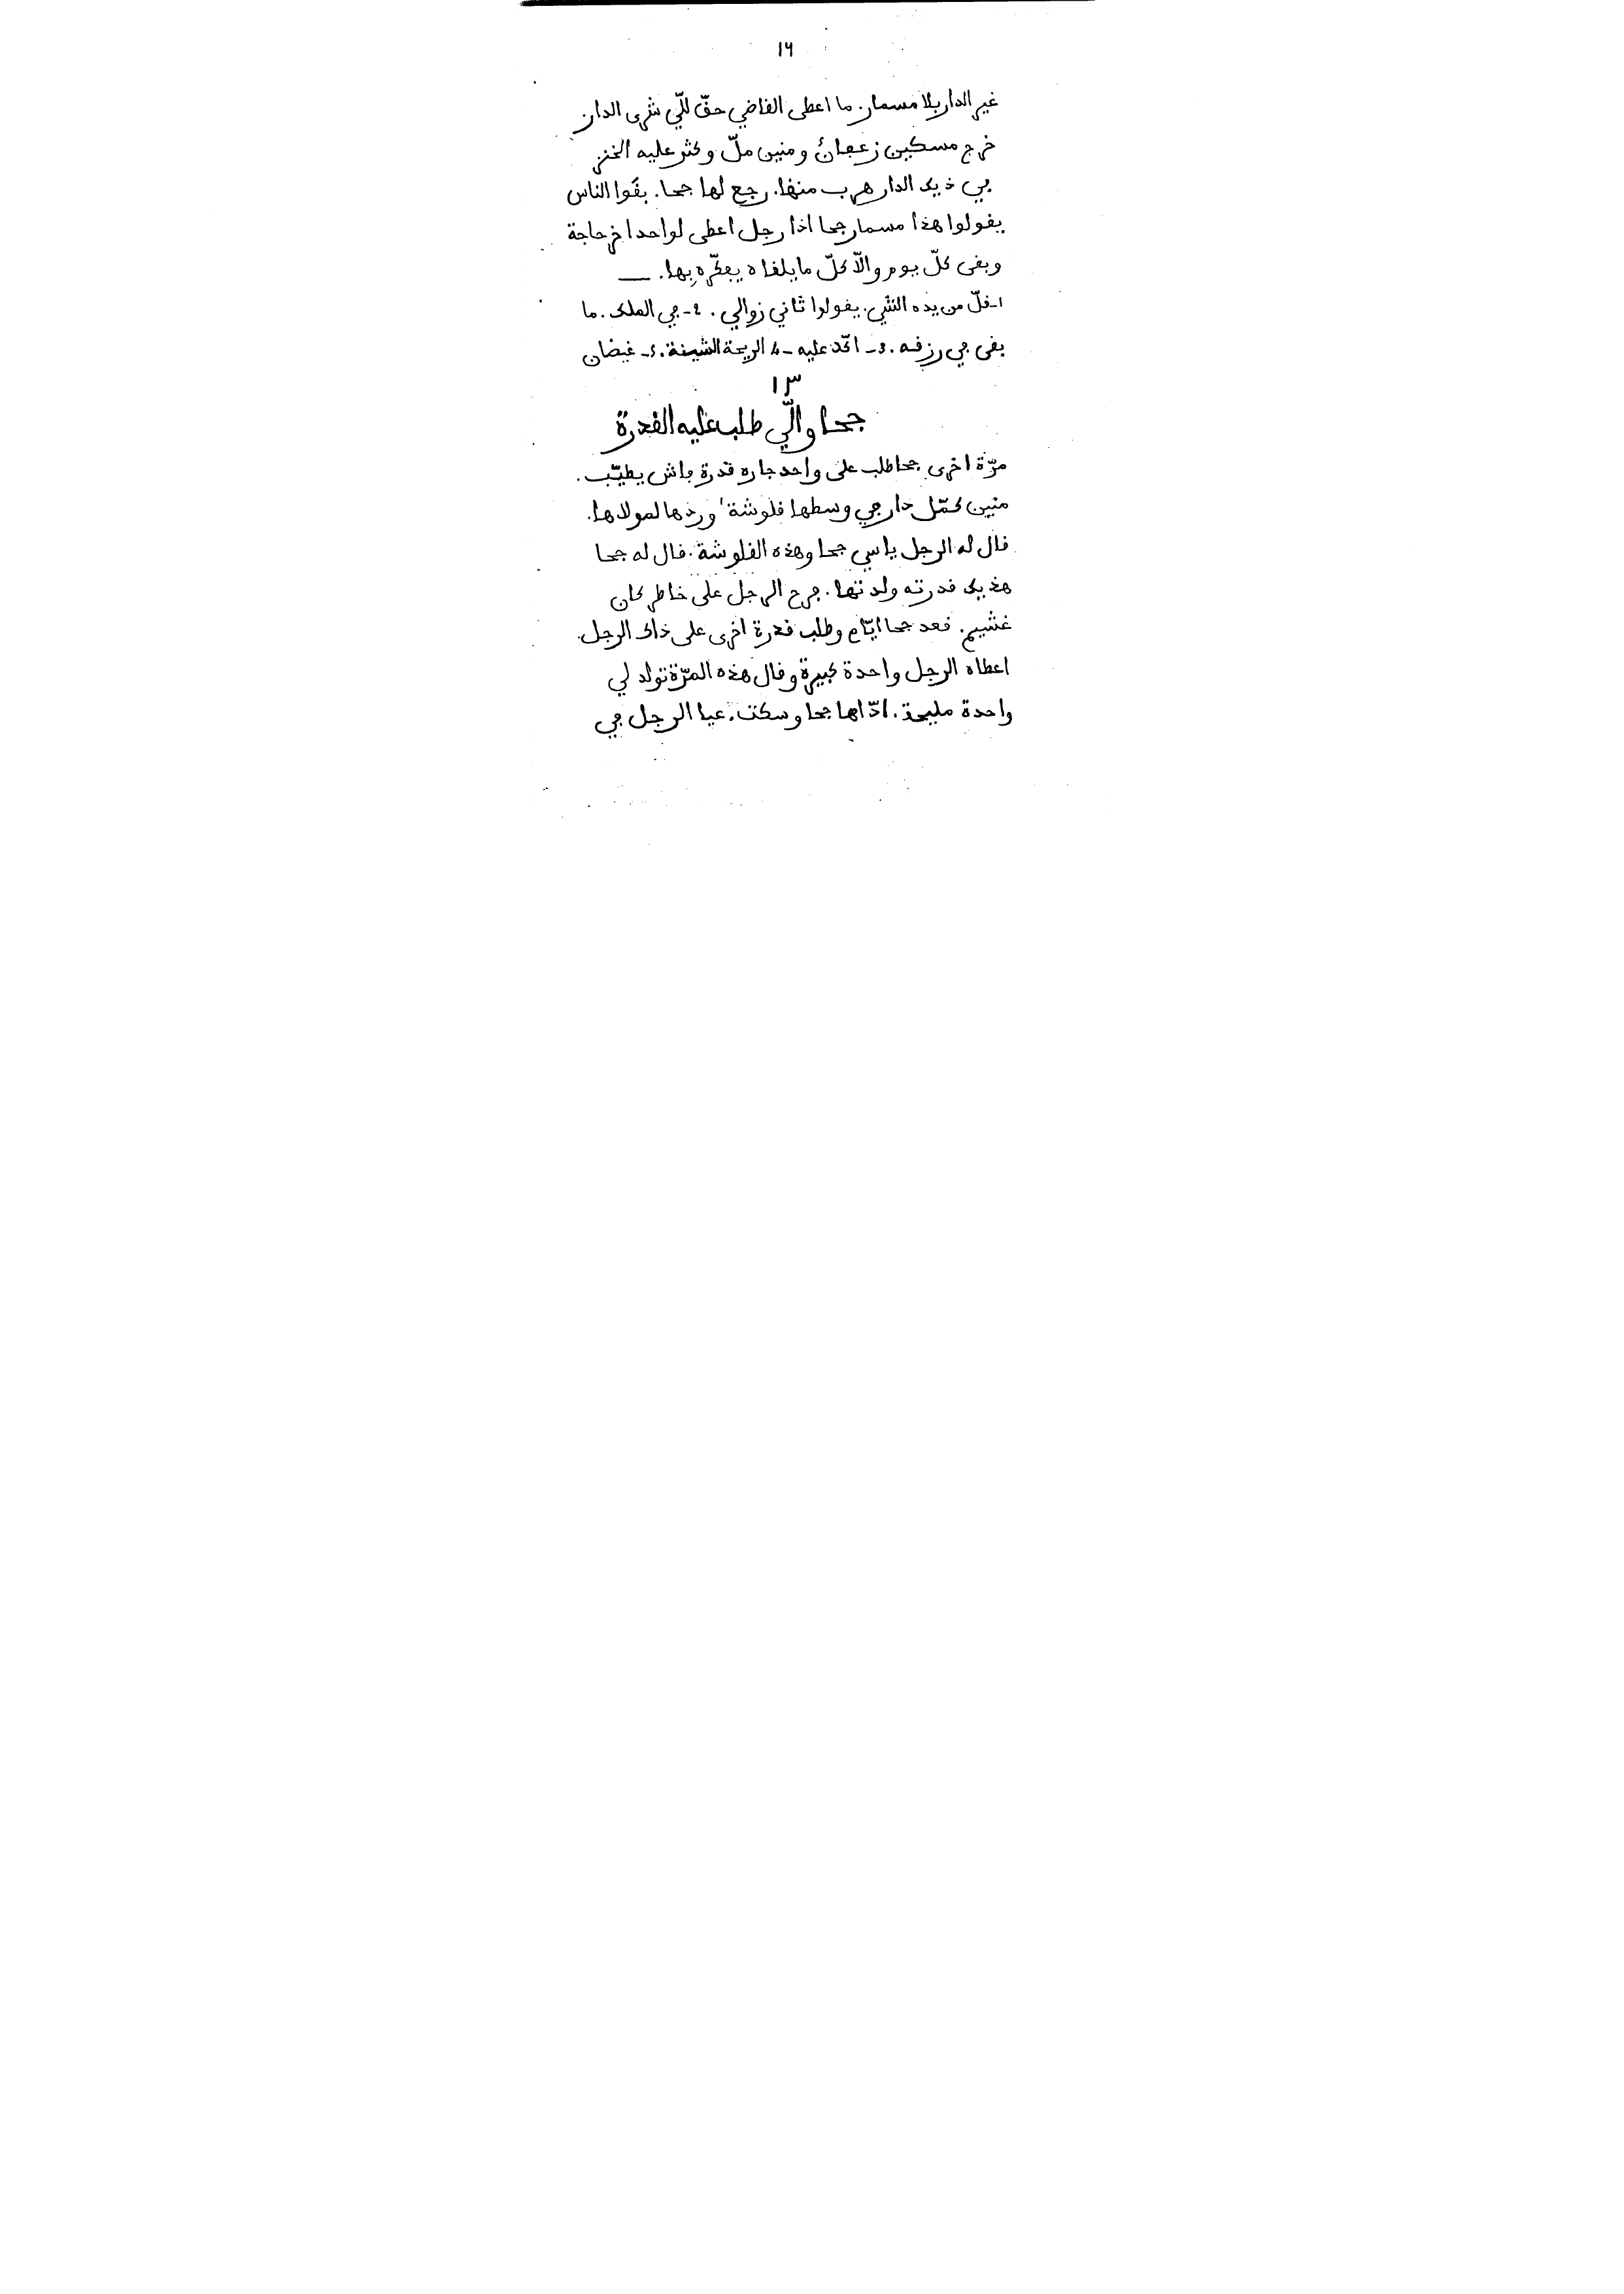 ١٦
غير الدار بلا مسمار. ما اعطى القاضي حقّ للّي شرى الدار
خرج مسكين زعفان ومنين ملّ وكثر عليه الخنز
في ذيك الدار هرب منها. رجع لها جحا. بقوا الناس
يقولوا هذا مسمار جحا اذا رجل اعطى لواحد اخر حاجة
وبقى كلّ يوم والّا كلّ ما يلقاه يفكّره بها. ـــ
١ـ قلّ من يده الشي. يقولوا ثاني زوالي. 2ـ في الملك. ما
بقى في رزقه. 3ـ اكّد عليه ـ 4 الريحة الشينة. 5ـ غيضان
١٣
جحا والّي طلب عليه القدرة
مرّة اخرى جحا طلب على واحد جاره قدرة باش يطيّب.
منين كمّل دار في وسطها قلوشة' وردها لمولاها.
قال له الرجل يا سي جحا وهذه القلوشة. قال له جحا
هذيك قدرته ولدتها. فرح الرجل على خاطر كان
غشيم. قعد جحا ايّام وطلب قدرة اخرى على ذاك الرجل.
اعطاه الرجل واحدة كبيرة وقال هذه المرّة تولد لي
واحدة مليحة. ادّاها جحا وسكت. عيا الرجل في